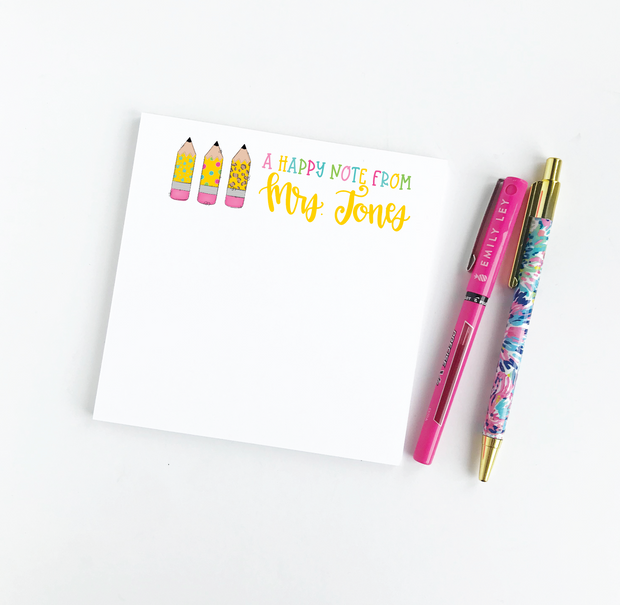 A HAPPY NOTE FROM
Mrs. Jones
EMILY LEY